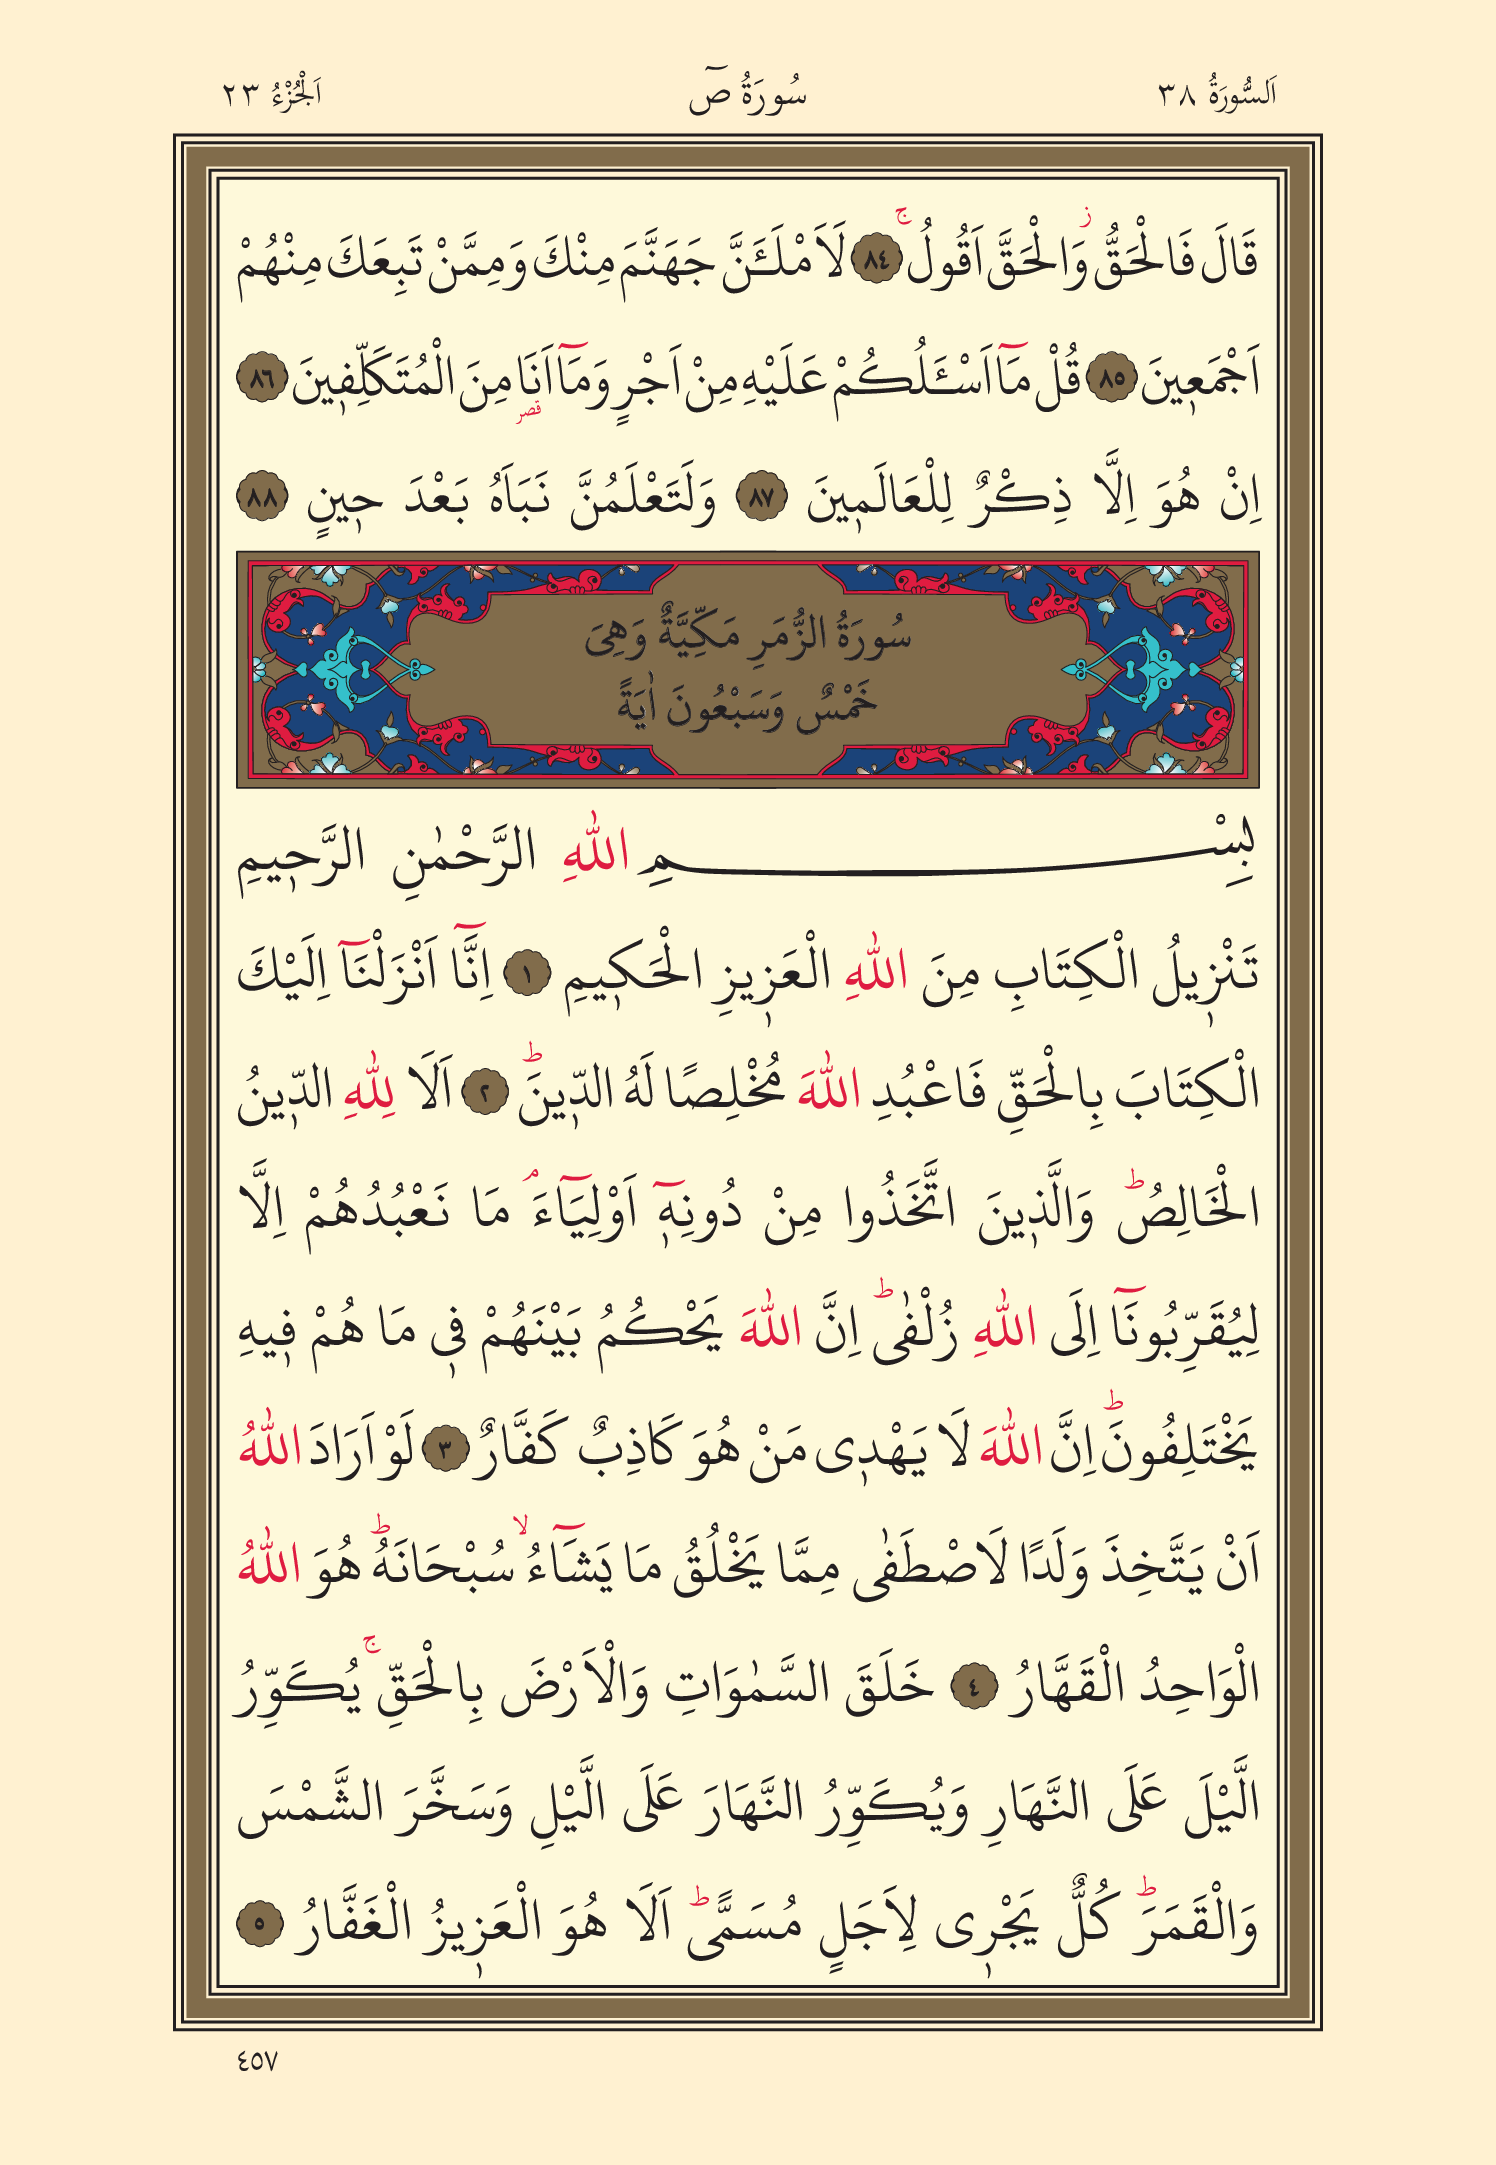 اَلسُّورَةُ ٣٨ سُورَةُ صٓ اَلْجُزْءُ ٢٣
قَالَ فَالْحَقُّ ز وَالْحَقَّ اَقُولُ ج ٨٤ لَاَمْلَـَٔنَّ جَهَنَّمَ مِنْكَ وَمِمَّنْ تَبِعَكَ مِنْهُمْ
اَجْمَع۪ينَ ٨٥ قُلْ مَٓا اَسْـَٔلُكُمْ عَلَيْهِ مِنْ اَجْرٍ وَمَٓا اَنَا قصر مِنَ الْمُتَكَلِّف۪ينَ ٨٦
اِنْ هُوَ اِلَّا ذِكْرٌ لِلْعَالَم۪ينَ ٨٧ وَلَتَعْلَمُنَّ نَبَاَهُ بَعْدَ ح۪ينٍ ٨٨
سُورَةُ الزُّمَرِ مَكِّيَّةٌ وَهِىَ
خَمْسٌ وَسَبْعُونَ اٰيَةً
بِسْــــــــمِ اللّٰهِ الرَّحْمٰنِ الرَّح۪يمِ
تَنْز۪يلُ الْكِتَابِ مِنَ اللّٰهِ الْعَز۪يزِ الْحَك۪يمِ ١ اِنَّٓا اَنْزَلْنَٓا اِلَيْكَ
الْكِتَابَ بِالْحَقِّ فَاعْبُدِ اللّٰهَ مُخْلِصًا لَهُ الدّ۪ينَ ط ٢ اَلَا لِلّٰهِ الدّ۪ينُ
الْخَالِصُ ط وَالَّذ۪ينَ اتَّخَذُوا مِنْ دُونِه۪ٓ اَوْلِيَٓاءَ م مَا نَعْبُدُهُمْ اِلَّا
لِيُقَرِّبُونَٓا اِلَى اللّٰهِ زُلْفٰى ط اِنَّ اللّٰهَ يَحْكُمُ بَيْنَهُمْ ف۪ى مَا هُمْ ف۪يهِ
يَخْتَلِفُونَ ط اِنَّ اللّٰهَ لَا يَهْد۪ى مَنْ هُوَ كَاذِبٌ كَفَّارٌ ٣ لَوْ اَرَادَ اللّٰهُ
اَنْ يَتَّخِذَ وَلَدًا لَاصْطَفٰى مِمَّا يَخْلُقُ مَا يَشَٓاءُ لا سُبْحَانَهُ ط هُوَ اللّٰهُ
الْوَاحِدُ الْقَهَّارُ ٤ خَلَقَ السَّمٰوَاتِ وَالْاَرْضَ بِالْحَقِّ ج يُكَوِّرُ
الَّيْلَ عَلَى النَّهَارِ وَيُكَوِّرُ النَّهَارَ عَلَى الَّيْلِ وَسَخَّرَ الشَّمْسَ
وَالْقَمَرَ ط كُلٌّ يَجْر۪ى لِاَجَلٍ مُسَمًّى ط اَلَا هُوَ الْعَز۪يزُ الْغَفَّارُ ٥
٤٥٧